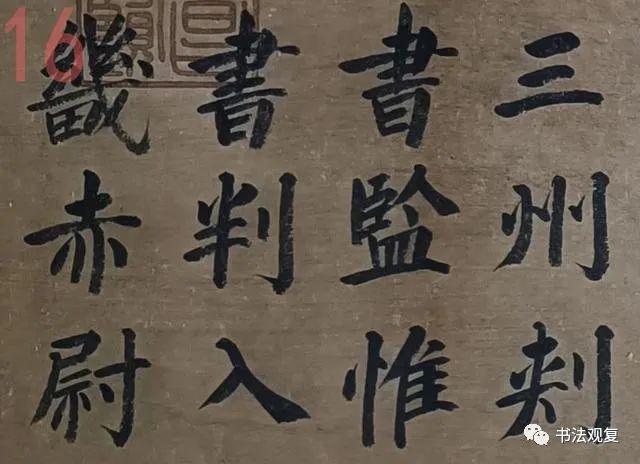 三州刾
書監惟
書判入
畿赤尉
16
书法观复